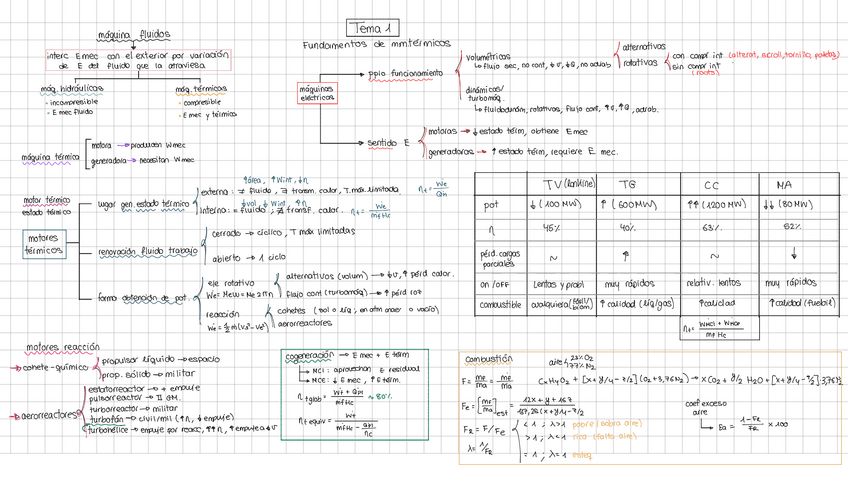 Tema 1
Fundamentos de mm.térmicos
máquina fluidos
interc Emec con el exterior por variación
de E del fluido que la atraviesa
máq. hidráulicas
- incompresible
- E mec fluido
máq. térmicas
- compresible
- E mec y térmica
máquina térmica
motora → producen Wmec
generadora → necesitan Wmec
máquinas
eléctricas
ppio funcionamiento
volumétricas
↳ flujo sec, no cont, ↓v, ↑Q, no adiab
alternativas
rotativas
con compr int (alterat, scroll, tornillo, paletas)
sin compr int
(roots)
dinámicas/
turbomáq.
↳ fluidodinám, rotativas, flujo cont, ↑v, ↑Q, adiab.
sentido E
motoras → ↓ estado térm, obtiene E mec
generadoras → ↑ estado térm, requiere E mec.
motor térmico
estado térmico
motores
térmicos
lugar gen. estado térmico
↑área, ↑Wint, ↓n
externa: ≠ fluido, ∃ transm. calor, T máx limitada.
ηt = We/QH
↓vol, ↓Wint, ↑n
interna: = fluido, ∄ transf. calor.
ηt = We/mfHc
renovación fluido trabajo
cerrado → cíclico, T máx limitadas
abierto → 1 ciclo
forma obtención de pot.
eje rotativo
We = Mew = Me2πn
alternativos (volum) → ↓v, ↑ pérd calor.
flujo cont (turbomáq) → ↑ pérd roz
reacción
We = 1/2 ṁ(Vs² - Ve²)
cohetes (sol o líq; en atm o vacío)
aerorreactores
TV (Rankine) TG CC MA
pot ↓ (100 MW) ↑ (600 MW) ↑↑ (1200 MW) ↓↓ (80 MW)
η 45% 40% 63% 52%
pérd. cargas
parciales ~ ↑ ~ ↓
on/OFF Lentas y probl muy rápidos relativ. lentos muy rápidos
combustible cualquiera ↑ calidad (líq/gas) ↑ calidad ↑ calidad (fueloil)
motores reacción
cohete-químico
propulsor líquido → espacio
prop. sólido → militar
aerorreactores
estatorreactor → + empuje
pulsorreactor → II GM.
turborreactor → militar
turbofán → civil/mil (↑n, ↓ empuje)
turbohélice → empuje por reacc, ↑↑n, ↑ empuje a ↓v
cogeneración → E mec + E term
MCI: aprovechan E residual
MCE: ↓ E mec, ↑ E térm.
ηt glob = Wt + QH / mfHc ≈ 80%
ηt equiv = Wt / mfHc - QH/ηc
ηt = WMCI + WMCE / mfHc
Combustión
aire 23% O2
77% N2
F = mf/ma = ṁf/ṁa
CxHyOz + [x+y/4-z/2](O2+3,76N2) → xCO2 + y/2 H2O + [x+y/4-z/2]·3,76N2
Fe = [mf/ma]est = 12x + y + 16z / 137,28(x+y/4-z/2)
FR = F/Fe
λ = 1/FR
< 1 ; λ>1 pobre (sobra aire)
> 1 ; λ<1 rica (falta aire)
= 1 ; λ=1 esteq
coef exceso
aire
↳ Ea = 1-FR/FR x 100